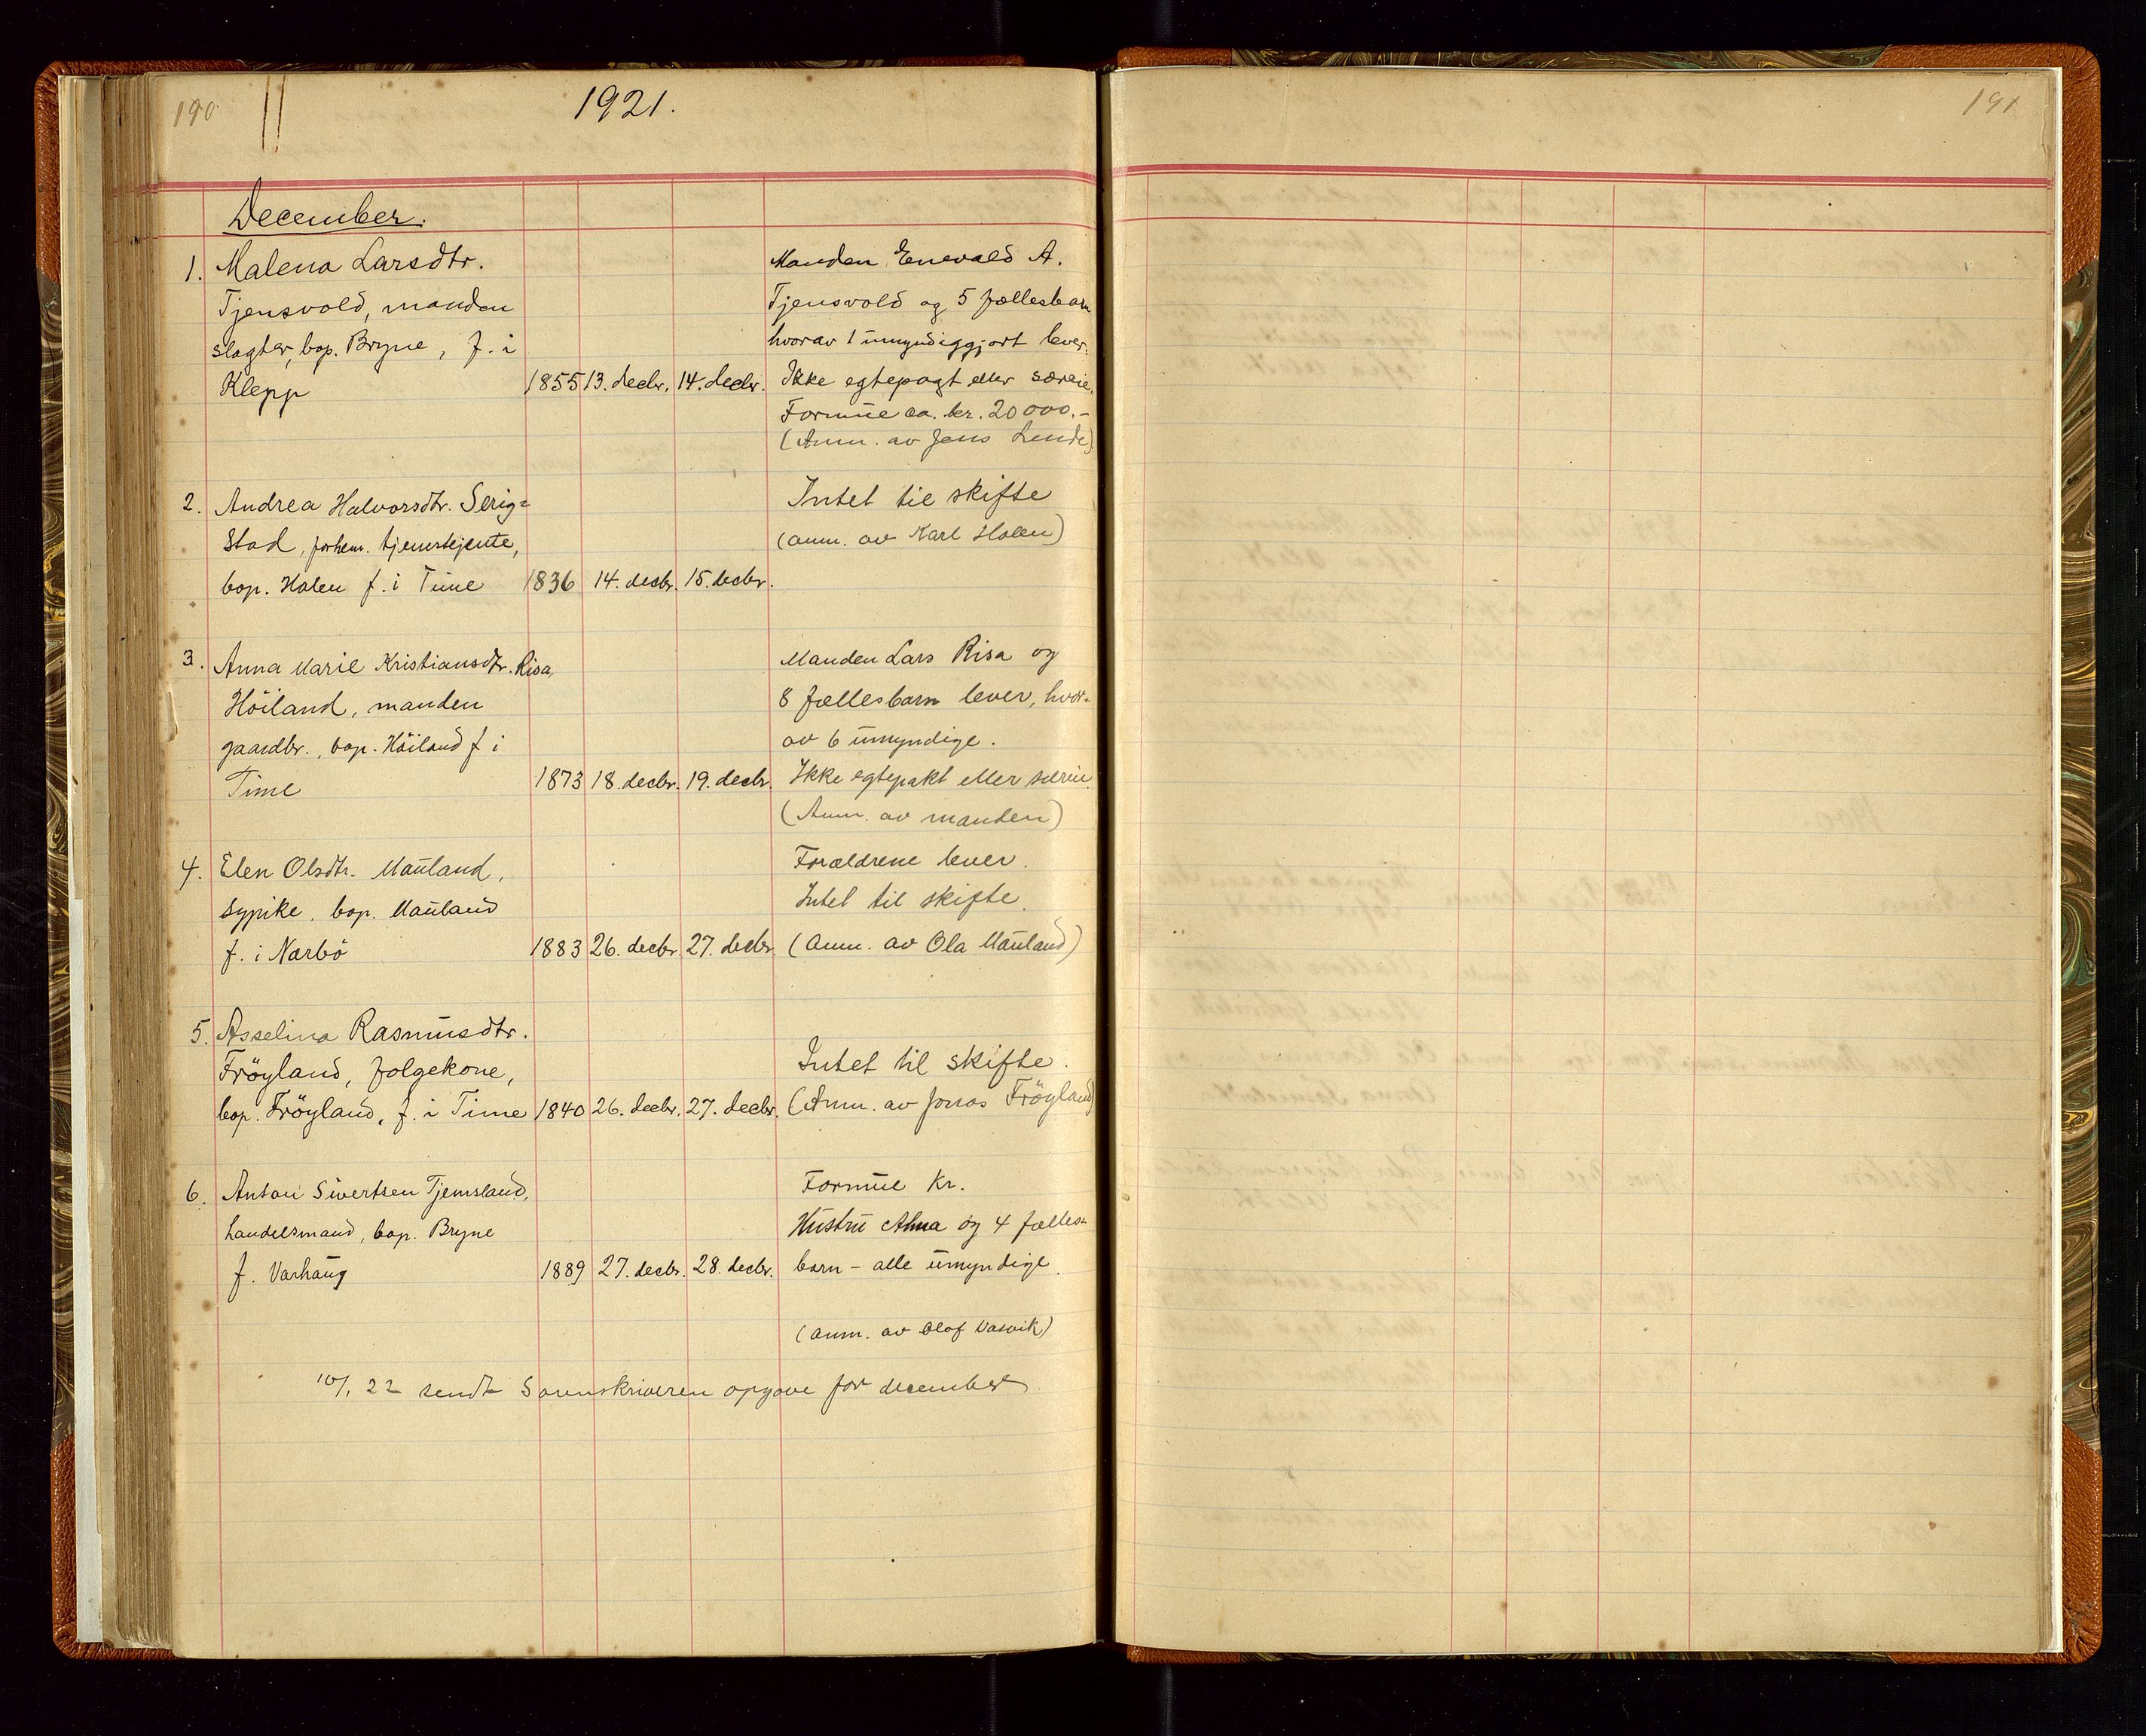 190
1921.
191
December.
1. Malena Larsdtr.
Tjensvold, manden
slagter, bop. Bryne, f. i
Klepp 1855 13. decbr. 14. decbr.
Manden Enevald A.
Tjensvold og 5 fællesbarn
hvorav 1 umyndiggjort lever.
Ikke egtepagt eller særeie.
Formue ca. kr. 20 000.-
(Anm. av Jens Linde)
2. Andrea Halvorsdtr. Serig=
stad, forhen. tjenestejente,
bop. Holen f. i Time 1836 14. decbr. 15. decbr.
Intet til skifte
(anm. av Karl Holen)
3. Anna Marie Kristiansdtr. Risa,
Höiland, manden
gaardbr., bop. Höiland f. i
Time 1873 18. decbr. 19. decbr.
Manden Lars Risa og
8 fællesbarn lever, hvor=
av 6 umyndige.
Ikke egtepakt eller særeie.
(Anm. av manden)
4. Elen Olsdtr. Mauland,
sypike, bop. Mauland
f. i Nærbö 1883 26. decbr. 27. decbr.
Forældrene lever.
Intet til skifte.
(anm. av Ola Mauland)
5. Asselina Rasmusdtr.
Fröyland, folgekone,
bop. Fröyland, f. i Time 1840 26. decbr. 27. decbr.
Intet til skifte.
(Anm. av Jonas Fröyland)
6. Anton Sivertsen Tjemsland,
handelsmand, bop. Bryne
f. Varhaug 1889 27. decbr. 28. decbr.
Formue Kr.
Hustru Alma og 4 fælles=
barn - alle umyndige.
(anm. av Olof Vasvik)
10/1 22 sendt Sorenskriveren opgave for december